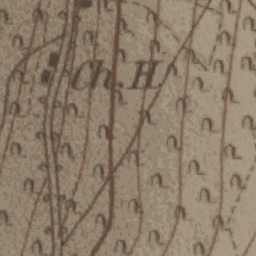 Ch. H.